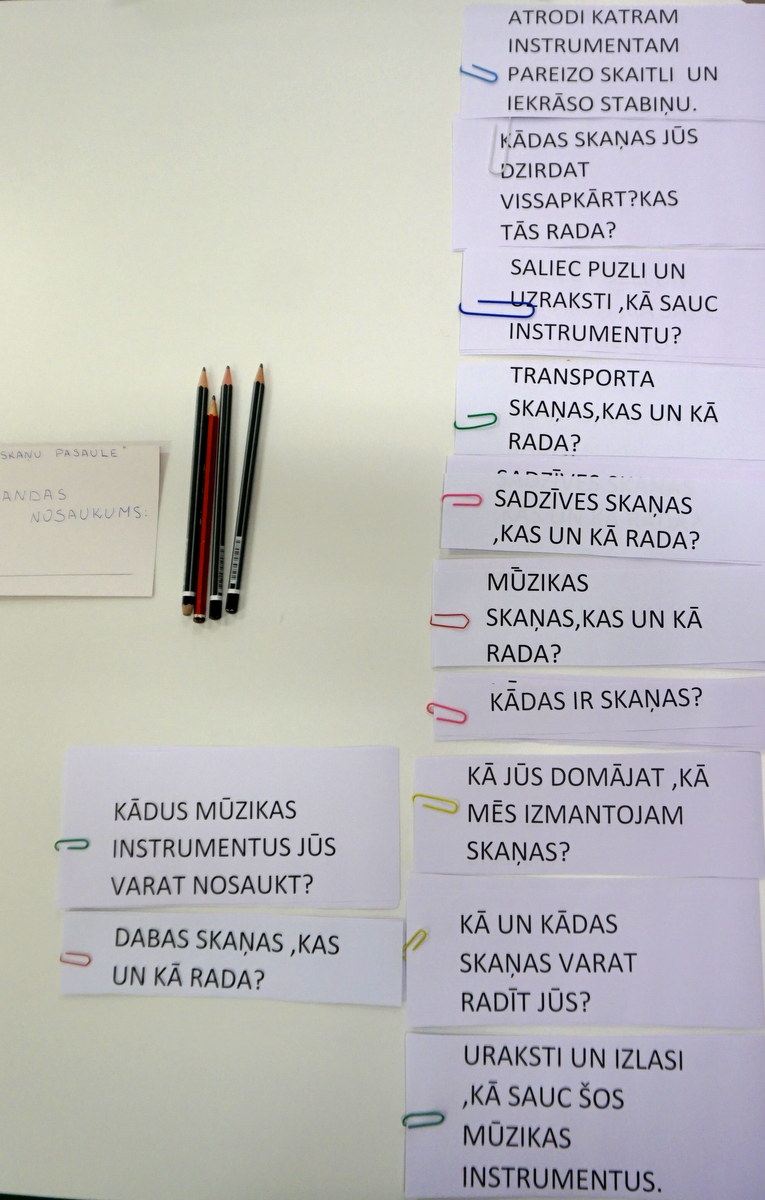 ATRODI KATRAM
INSTRUMENTAM
PAREIZO SKAITLI UN
IEKRĀSO STABIŅU.
KĀDAS SKAŅAS JŪS
DZIRDAT
VISSAPKĀRT?KAS
TĀS RADA?
SALIEC PUZLI UN
UZRAKSTI ,KĀ SAUC
INSTRUMENTU?
TRANSPORTA
SKAŅAS,KAS UN KĀ
RADA?
SADZĪVES SKAŅAS
SADZĪVES SKAŅAS
,KAS UN KĀ RADA?
MŪZIKAS
SKAŅAS,KAS UN KĀ
RADA?
KĀDAS IR SKAŅAS?
KĀ JŪS DOMĀJAT ,KĀ
MĒS IZMANTOJAM
SKAŅAS?
KĀ UN KĀDAS
SKAŅAS VARAT
RADĪT JŪS?
URAKSTI UN IZLASI
,KĀ SAUC ŠOS
MŪZIKAS
INSTRUMENTUS.
SKAŅU PASAULE"
ANDAS
NOSAUKUMS:
KĀDUS MŪZIKAS
INSTRUMENTUS JŪS
VARAT NOSAUKT?
DABAS SKAŅAS ,KAS
UN KĀ RADA?